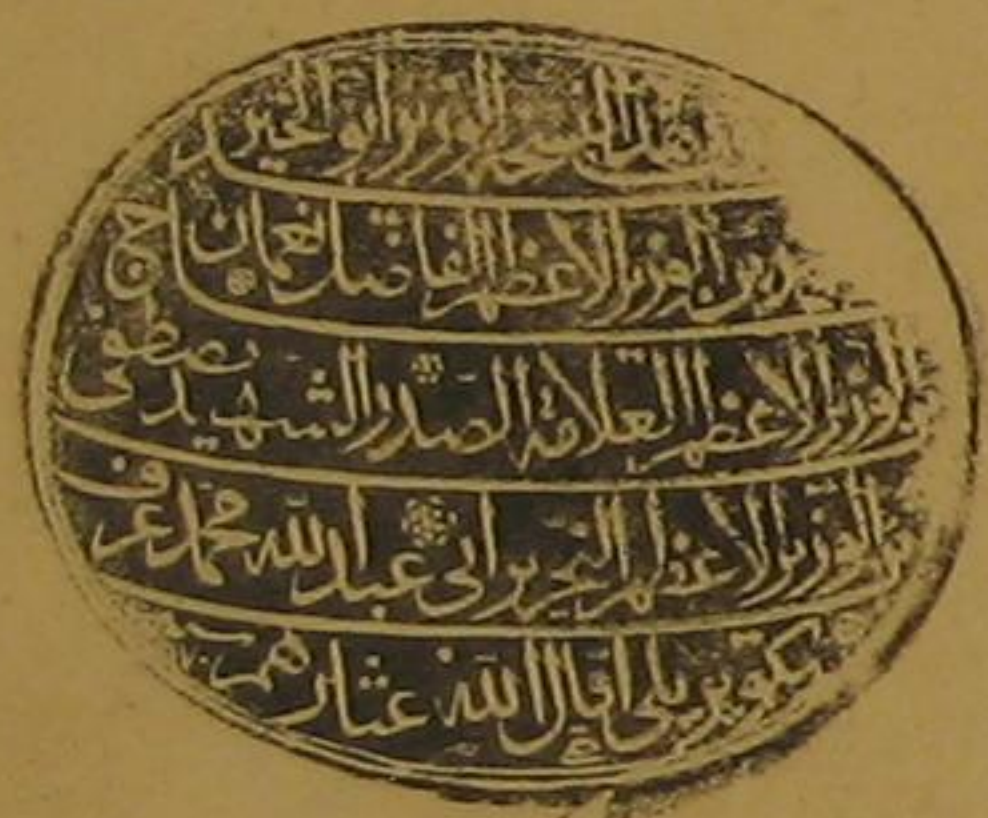 الوزير ابو الخير
بن الوزير الاعظم الفاضل نعمان
الوزير الاعظم العلامة الصدر الشهيد مصطفى
بن الوزير الاعظم النحرير ابي عبد الله محمد عرف
بكوپريلي اقال الله عثارهم